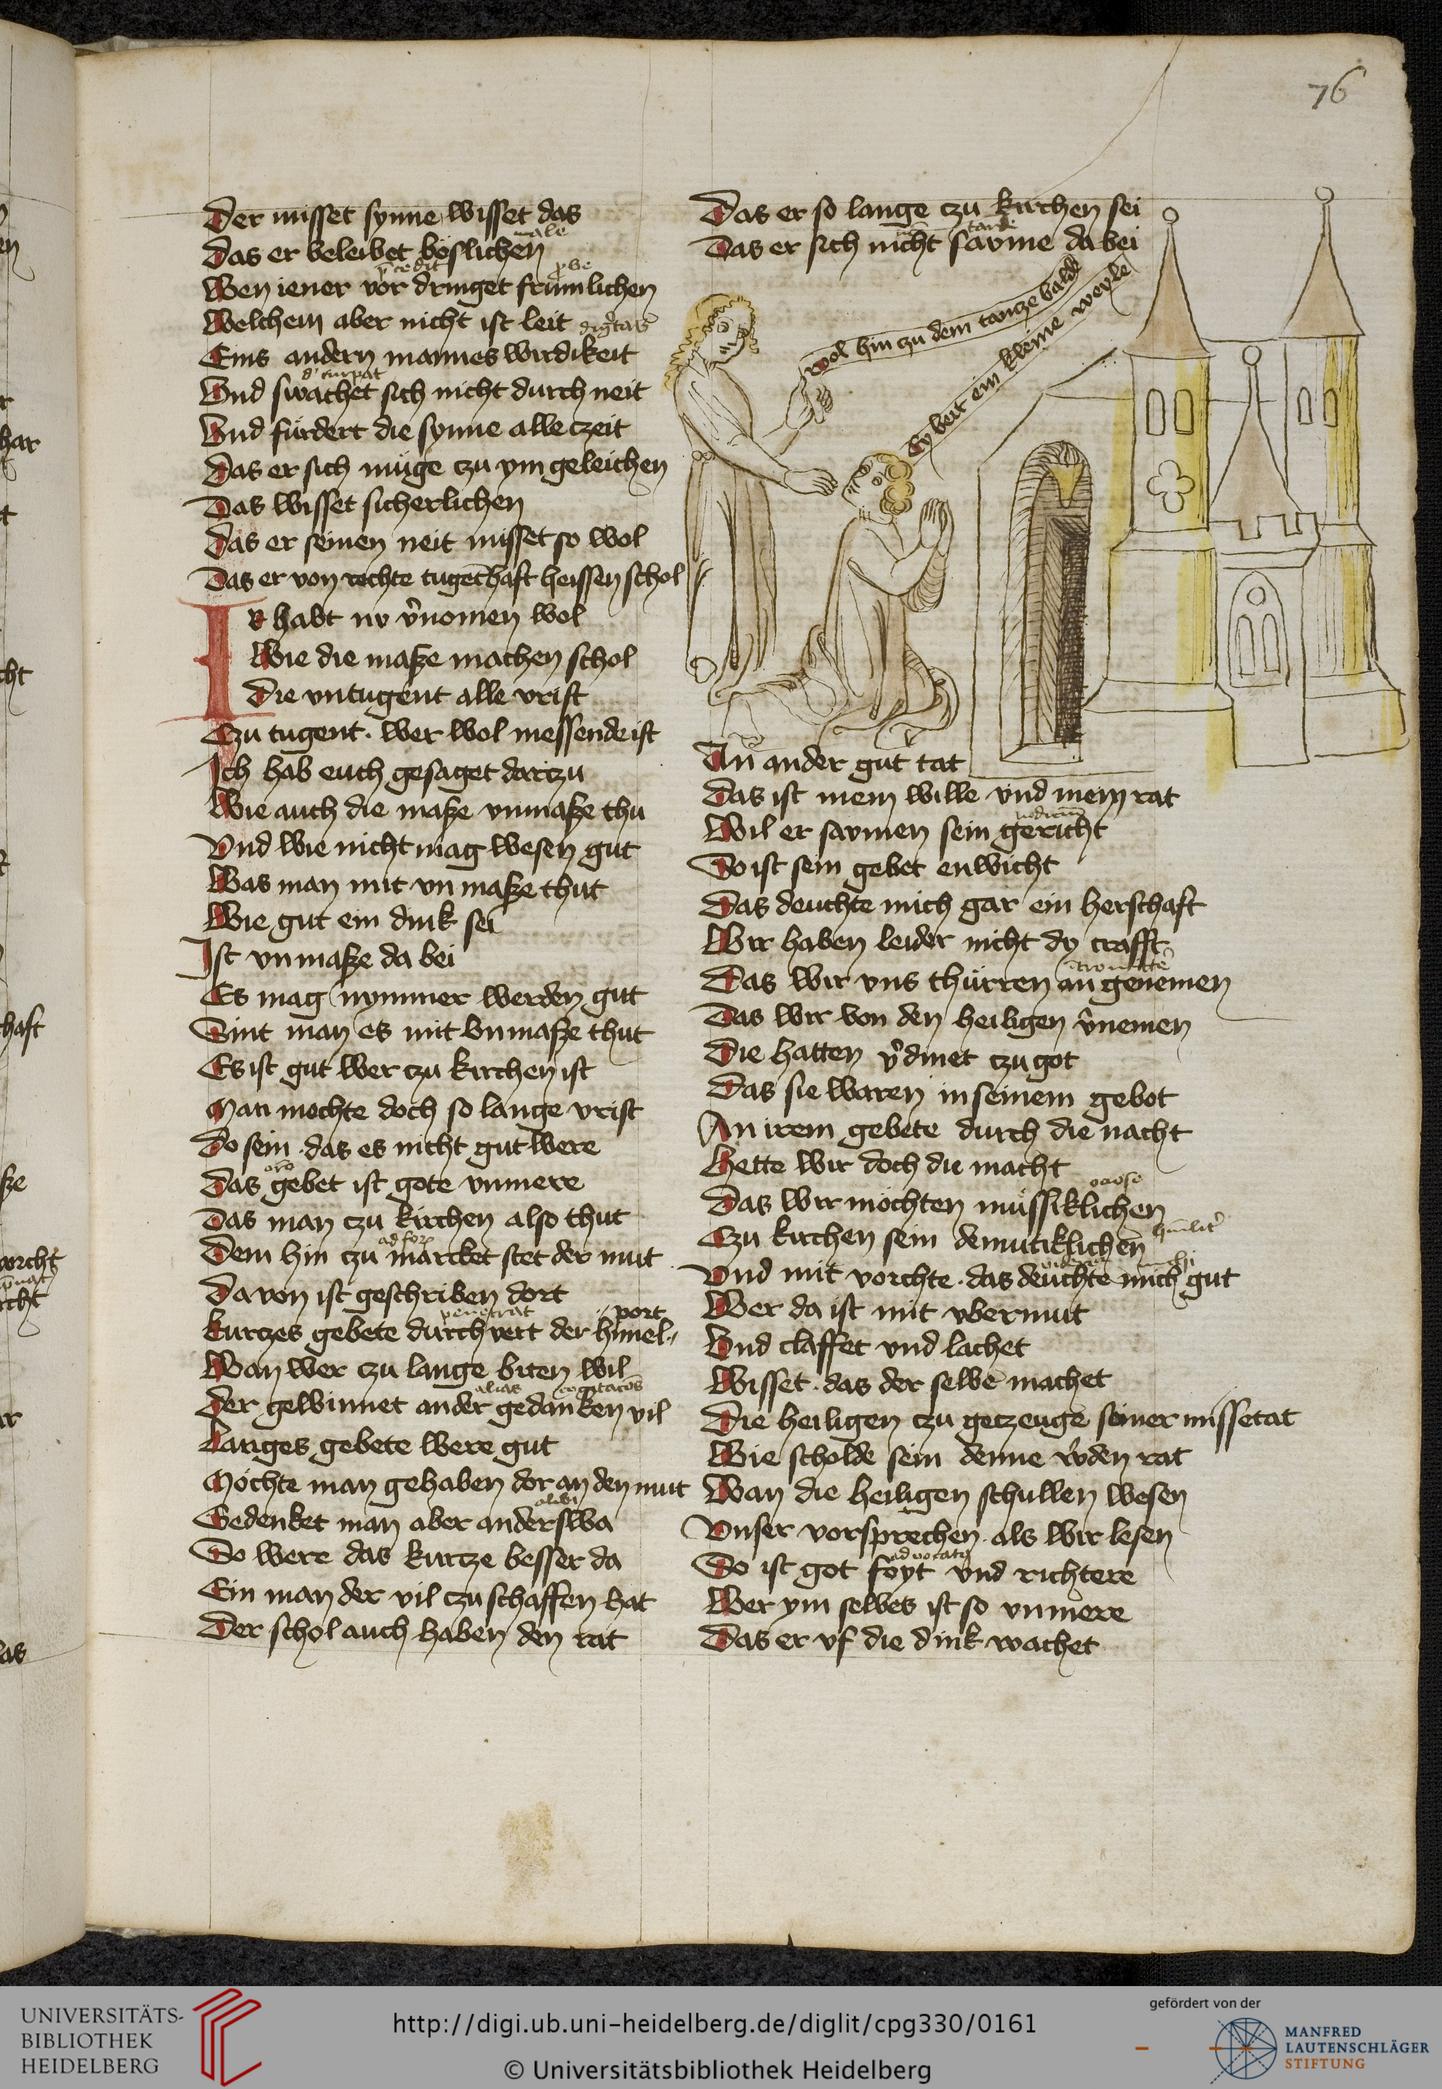 76
Der misset synne wisset das
male
Das er beleibet böslichen
p̄cedit p̱be
Wen iener vor dringet frümlichen
Welchem aber nicht ist leit dig̃tas
Eins andern mannes wirdikeit
d'turpat
Vnd swachet sich nicht durch neit
Vnd fürdert die synne alle czeit
Das er sich müge czu ym geleichen
Das wisset sicherlichen
Das er seinen neit misset so wol
Das er von rechte tugethaft heissen schol
IR habt nv v̉nomen wol
Wie die masze machen schol
Die vntugent alle vrist
Czu tugent. wer wol messende ist
Ich hab euch gesaget darczu
Wie auch die masze vnmasze thu
Vnd wie nicht mag wesen gut
Was man mit vnmasze thut
Wie gut ein dink sei
Ist vnmasze da bei
Es mag nymmer werden gut
Sint man es mit vnmasze thut
Es ist gut wer czu kirchen ist
Man mochte doch so lange vrist
Do sein. das es nicht gut were
oro
Das gebet ist gote vnmere
Das man czu kirchen also thut
ad for
Dem hin czu marcket stet der mut
Da von ist geschriben dort
penetrat port
Kurczes gebete durch vert der himel
Wan wer czu lange biten wil
alias cogitacōs
Der gewinnet ander gedanken vil
Langes gebete were gut
Möchte man gehaben dor an den mut
alibi
Gedenket man aber anderswa
So were das kurcze besser da
Ein man der vil czu schaffen hat
Der schol auch haben den rat
Das er so lange czu kirchen sei
tardet
Das er sich nicht savme da bei
wol hin zu dem tancze bald
Ey beit ein kleine weyle
An ander gut tat
Das ist mein wille vnd mein rat
iudiciū
Wil er savmen sein gericht
So ist sein gebet enwicht
Das deuchte mich gar ein herschaft
Wir haben leider nicht dy crafft
Das wir vns thürren an genemen
Das wir von den heiligen v̉nemen
Die hatten v̉dinet czu got
Das sie waren in seinem gebot
An irem gebete durch die nacht
Hette wir doch die macht
ociose
Das wir möchten müssiklichen
Czu kirchen sein demutiklichen hūilit̉
Vnd mit vorchte. das deuchte mich gut
Wer da ist mit vbermut
Vnd claffet vnd lachet
Wisset. das der selbe machet
Die heiligen czu geczeuge seiner missetat
Wie scholde sein denne w̉den rat
Wan die heiligen schullen wesen
Vnser vorsprechen. als wir lesen
advocatꝯ
So ist got foyt vnd richtere
Wer ym selbes ist so vnmere
Das er vf die dink wachet
UNIVERSITÄTS-
BIBLIOTHEK
HEIDELBERG
http://digi.ub.uni-heidelberg.de/diglit/cpg330/0161
© Universitätsbibliothek Heidelberg
gefördert von der
MANFRED
LAUTENSCHLÄGER
STIFTUNG